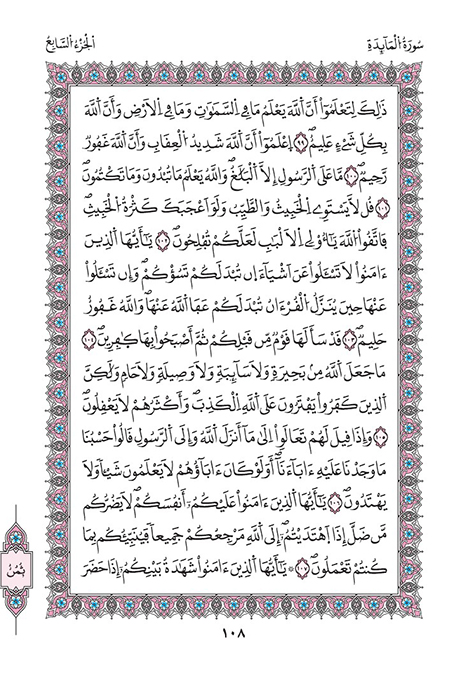 سُورَةُ الْمَآئِدَةِ
الْجُزْءُ السَّابِعُ
ذَٰلِكَ لِتَعْلَمُوٓاْ أَنَّ اَللَّهَ يَعْلَمُ مَا فِے اِلسَّمَٰوَٰتِ وَمَا فِے اِلَارْضِ وَأَنَّ اَللَّهَ
بِكُلِّ شَےْءٍ عَلِيمٌ ٩٩ اِعْلَمُوٓاْ أَنَّ اَللَّهَ شَدِيدُ اُلْعِقَابِ وَأَنَّ اَللَّهَ غَفُورٌ
رَّحِيمٌ ١٠٠ مَّا عَلَى اَلرَّسُولِ إِلَّا اَلْبَلَٰغُ وَاللَّهُ يَعْلَمُ مَا تُبْدُونَ وَمَا تَكْتُمُونَ
١٠١ قُل لَّا يَسْتَوِے اِلْخَبِيثُ وَالطَّيِّبُ وَلَوَ اَعْجَبَكَ كَثْرَةُ اُلْخَبِيثِ
فَاتَّقُواْ اُللَّهَ يَٰٓأُوْلِے اِلَالْبَٰبِ لَعَلَّكُمْ تُفْلِحُونَ ١٠٢ يَٰٓأَيُّهَا اَلذِينَ
ءَامَنُواْ لَا تَسْـَٔلُواْ عَنَ اَشْيَآءَ اِن تُبْدَ لَكُمْ تَسُؤْكُمْ وَإِن تَسْـَٔلُواْ
عَنْهَا حِينَ يُنَزَّلُ اُلْقُرْءَانُ تُبْدَ لَكُمْ عَفَا اَللَّهُ عَنْهَا وَاللَّهُ غَفُورٌ
حَلِيمٌ ١٠٣ قَدْ سَأَلَهَا قَوْمٌ مِّن قَبْلِكُمْ ثُمَّ أَصْبَحُواْ بِهَا كَٰفِرِينَ ١٠٤
مَا جَعَلَ اَللَّهُ مِنۢ بَحِيرَةٍ وَلَا سَآئِبَةٍ وَلَا وَصِيلَةٍ وَلَا حَامٍ وَلَٰكِنَّ
اَلذِينَ كَفَرُواْ يَفْتَرُونَ عَلَى اَللَّهِ اِلْكَذِبَ وَأَكْثَرُهُمْ لَا يَعْقِلُونَ
١٠٥ وَإِذَا قِيلَ لَهُمْ تَعَالَوِاْ اِلَىٰ مَآ أَنزَلَ اَللَّهُ وَإِلَى اَلرَّسُولِ قَالُواْ حَسْبُنَا
مَا وَجَدْنَا عَلَيْهِ ءَابَآءَنَآ أَوَلَوْ كَانَ ءَابَآؤُهُمْ لَا يَعْلَمُونَ شَيْـٔاً وَلَا
يَهْتَدُونَ ١٠٦ يَٰٓأَيُّهَا اَلذِينَ ءَامَنُواْ عَلَيْكُمُۥٓ أَنفُسَكُمْ لَا يَضُرُّكُم
مَّن ضَلَّ إِذَا اَهْتَدَيْتُمُۥٓ إِلَى اَللَّهِ مَرْجِعُكُمْ جَمِيعاً فَيُنَبِّئُكُم بِمَا
كُنتُمْ تَعْمَلُونَ ١٠٧ ۞ يَٰٓأَيُّهَا اَلذِينَ ءَامَنُواْ شَهَٰدَةُ بَيْنِكُمُۥٓ إِذَا حَضَرَ
ثُمُنُ
١٠٨